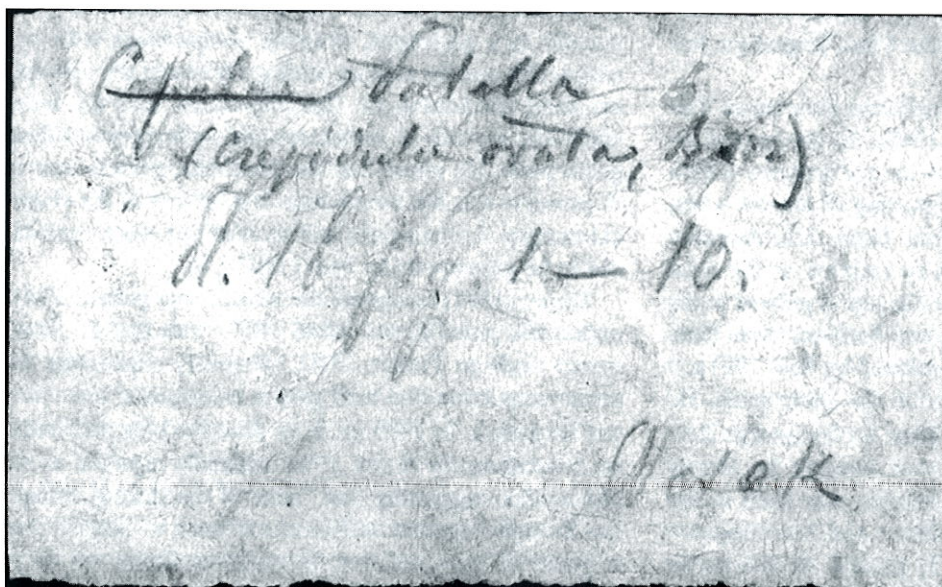 ~~Capulus~~ Patella
(Crepidula ovata, Barr)
Pl. 16 fig. 1 — 10.
Novak